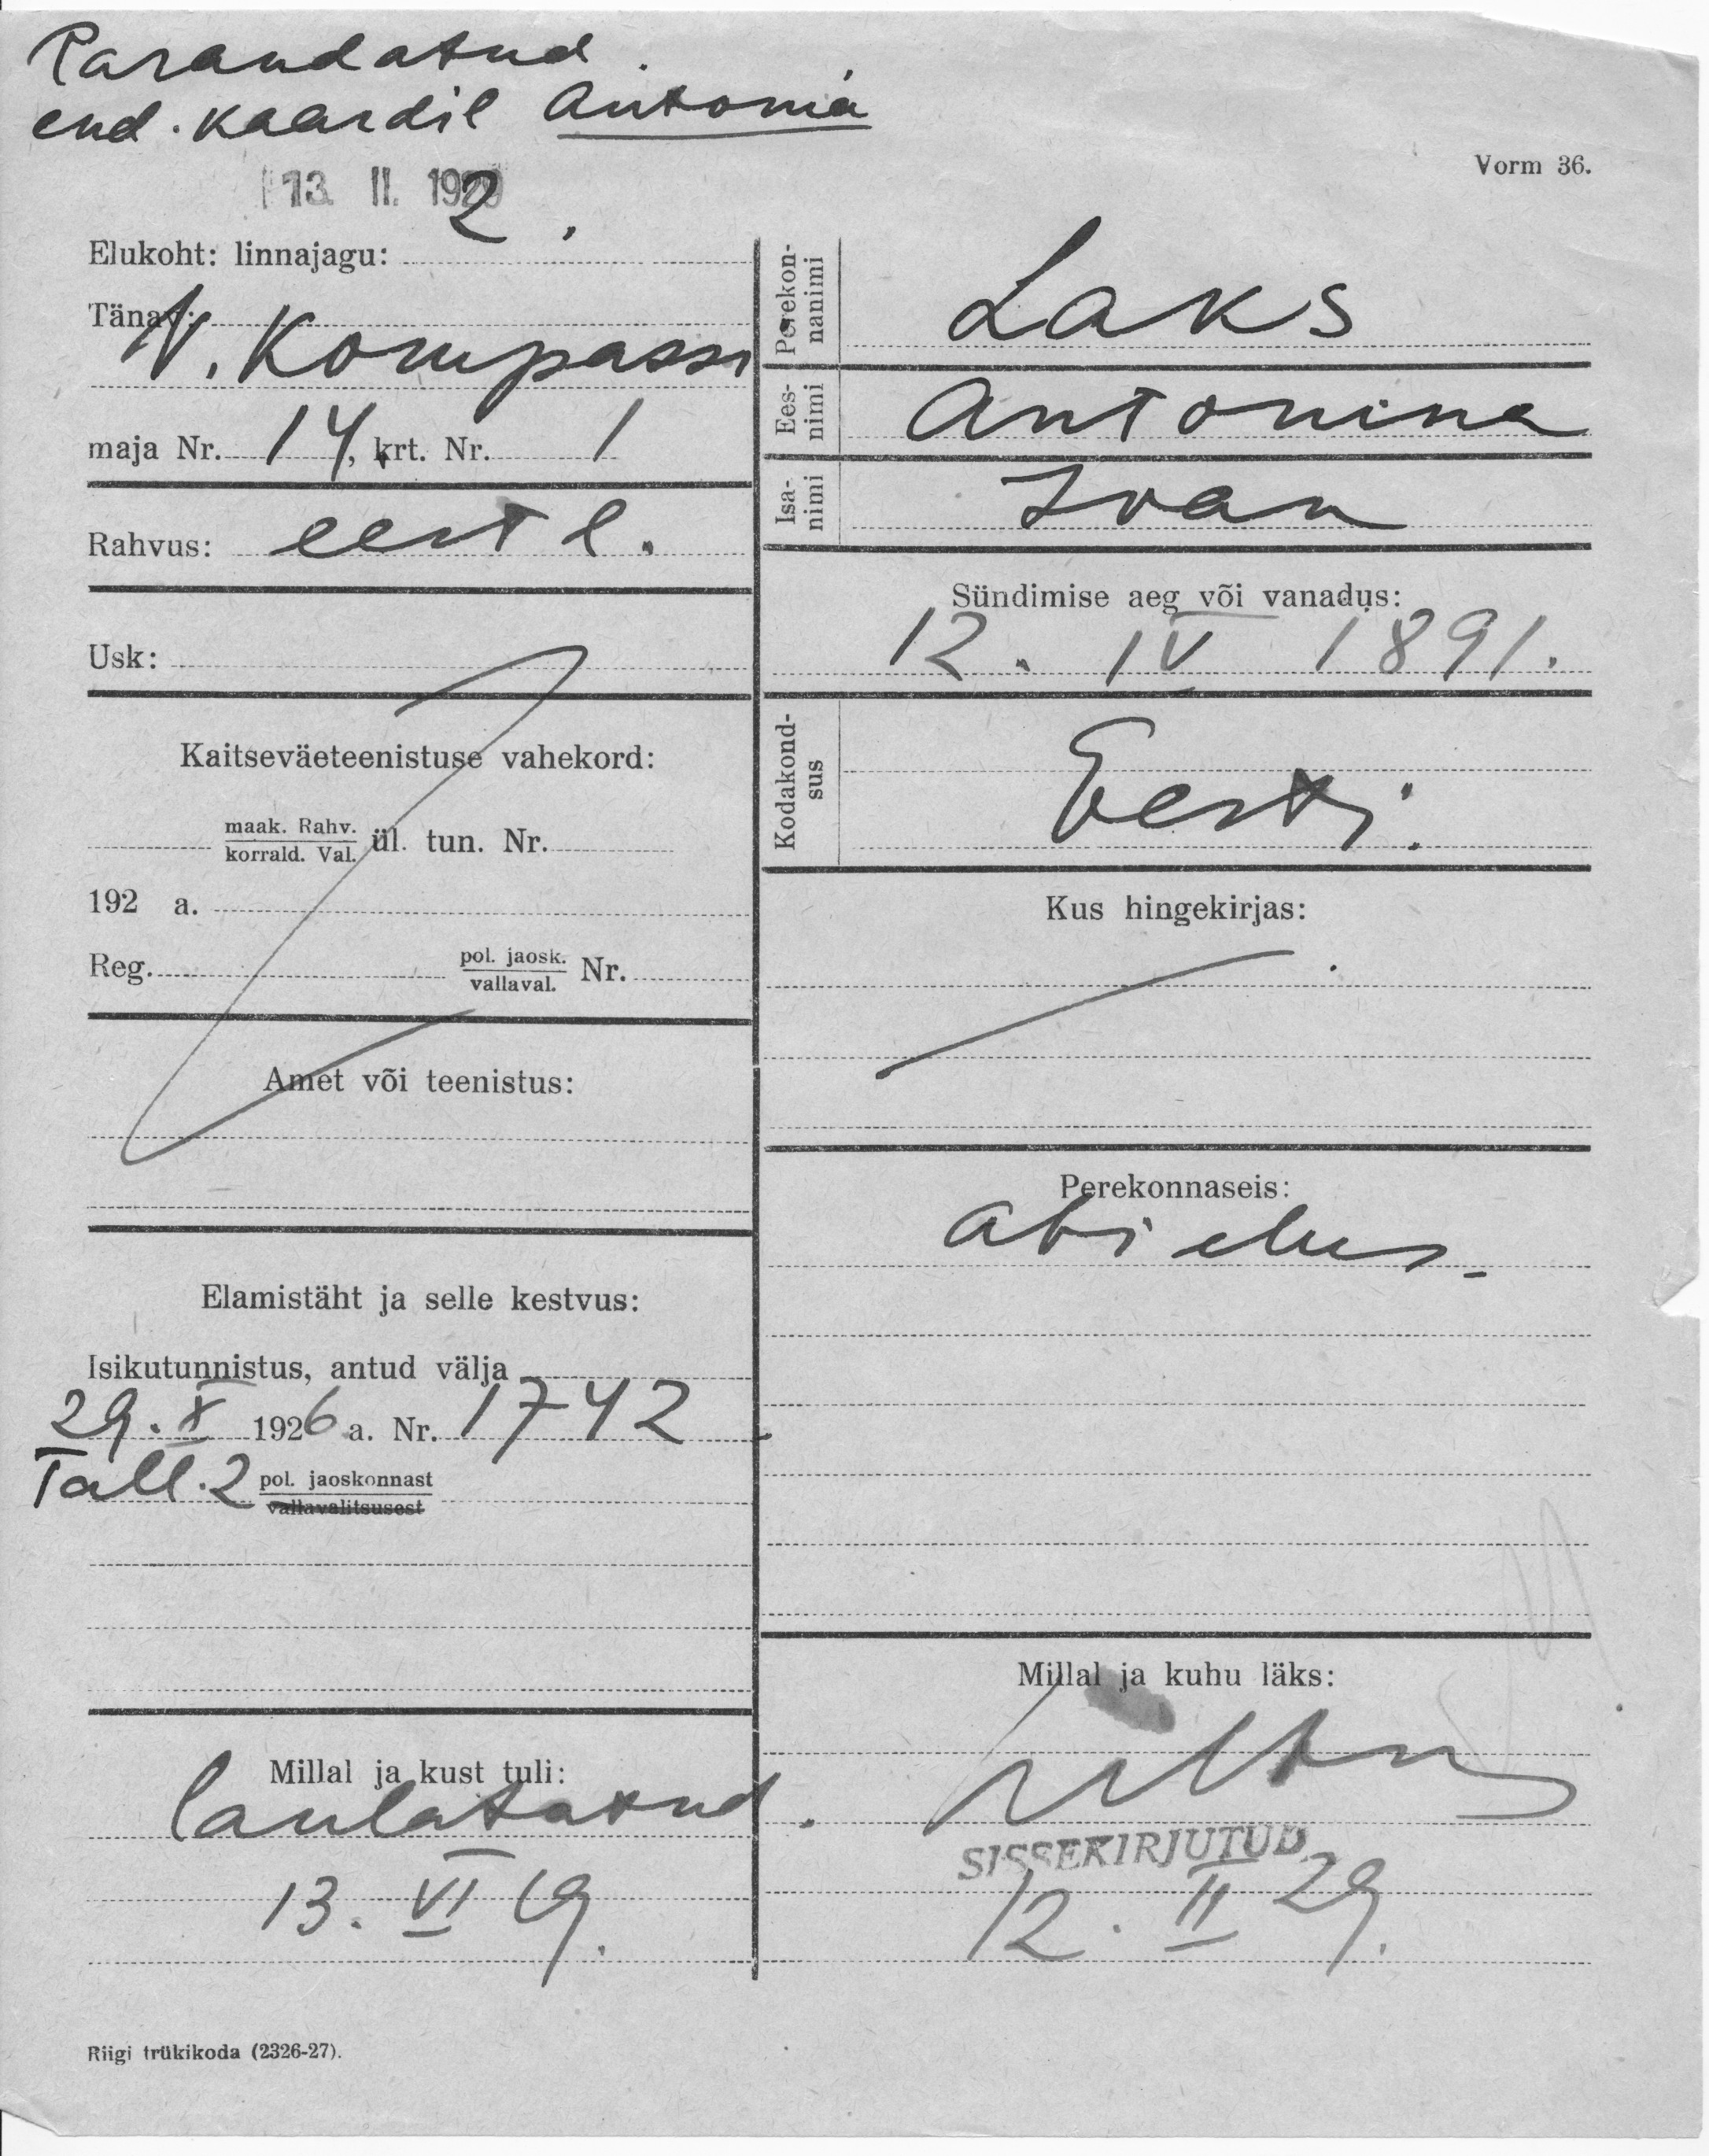 Parandatud
end. kaardil Antonia
13. II. 1929
Vorm 36.
Elukoht: linnajagu: 2.
Tänav:
V. Kompassi
maja Nr. 14, krt. Nr. 1
Rahvus: eestl.
Usk:
Kaitseväeteenistuse vahekord:
maak. Rahv.
korrald. Val. ül. tun. Nr.
192 a.
Reg. pol. jaosk.
vallaval. Nr.
Amet või teenistus:
Elamistäht ja selle kestvus:
Isikutunnistus, antud välja
29. X 1926 a. Nr. 1742
Tall. 2 pol. jaoskonnast
vallavalitsusest
Millal ja kust tuli:
laulatatud.
13. VI 19.
Perekon-
nanimi
Laks
Ees-
nimi
Antonina
Isa-
nimi
Ivan
Sündimise aeg või vanadus:
12. IV 1891.
Kodakond-
sus
Eesti.
Kus hingekirjas:
Perekonnaseis:
abielus.
Millal ja kuhu läks:
SISSEKIRJUTUD
12. II 29.
Riigi trükikoda (2326-27).